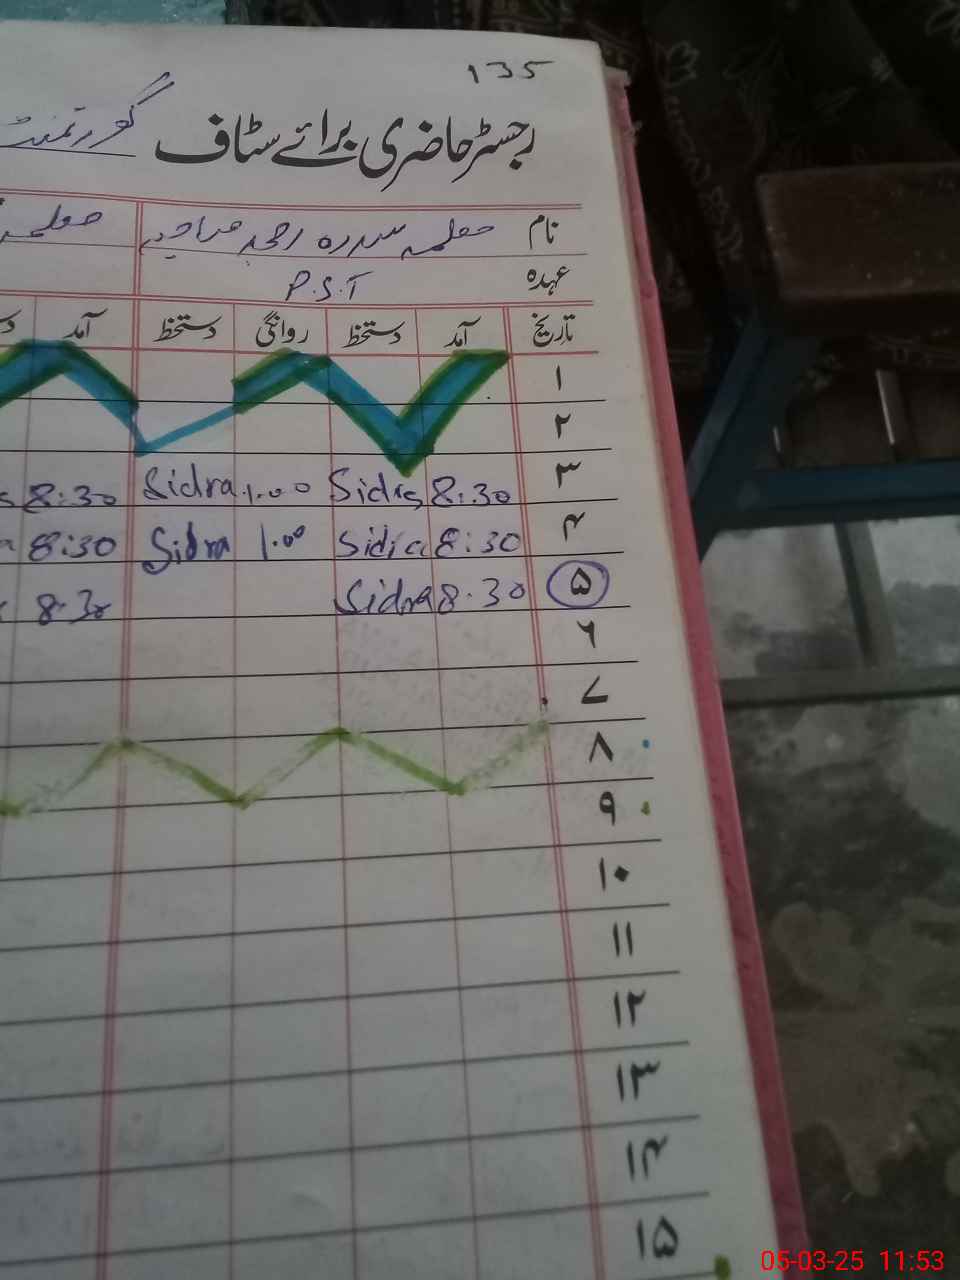 135
رجسٹر حاضری برائے سٹاف گورنمنٹ
نام معلمہ سدرہ رحیم صاحبہ معلمہ
عہدہ P.S.T
تاریخ آمد دستخط روانگی دستخط آمد
۱
۲
۳ 8:30 Sidra 1.00 Sidra 8:30
۴ 8:30 Sidra 1.00 Sidra 8:30
۵ 8.30 Sidra 8.30
۶
۷
۸
۹
۱۰
۱۱
۱۲
۱۳
۱۴
۱۵
05-03-25 11:53